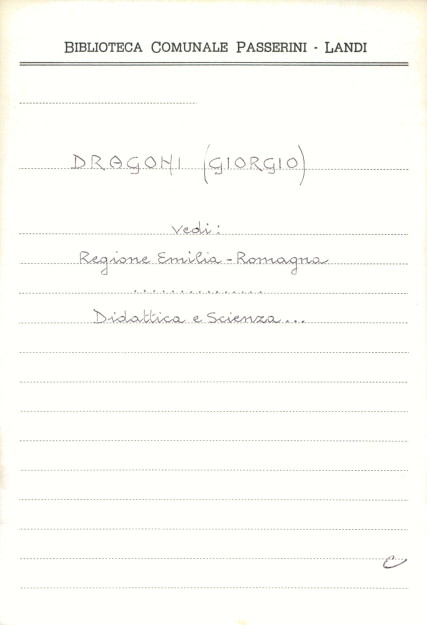 BIBLIOTECA COMUNALE PASSERINI - LANDI
DRAGONI (GIORGIO)
vedi:
Regione Emilia - Romagna
...............
Didattica e Scienza...
C